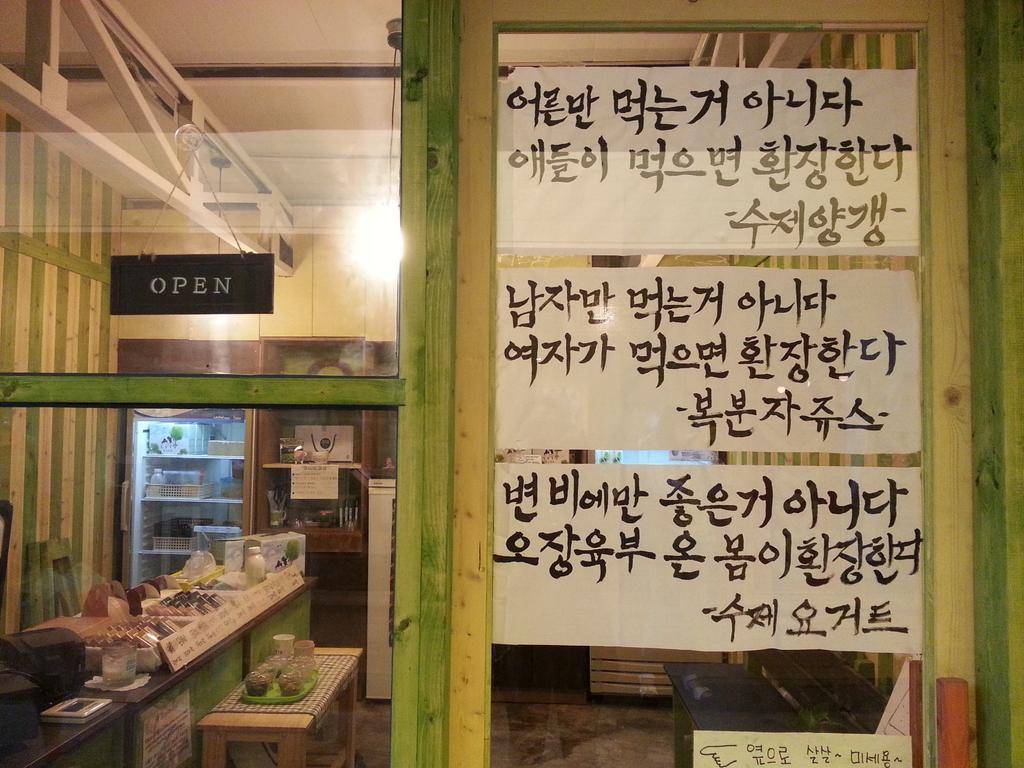 OPEN
어른만 먹는거 아니다
애들이 먹으면 환장한다
-수제양갱-
남자만 먹는거 아니다
여자가 먹으면 환장한다
-복분자쥬스-
변비에만 좋은거 아니다
오장육부 온 몸이환장한다
-수제요거트
옆으로 살살~ 미세용~